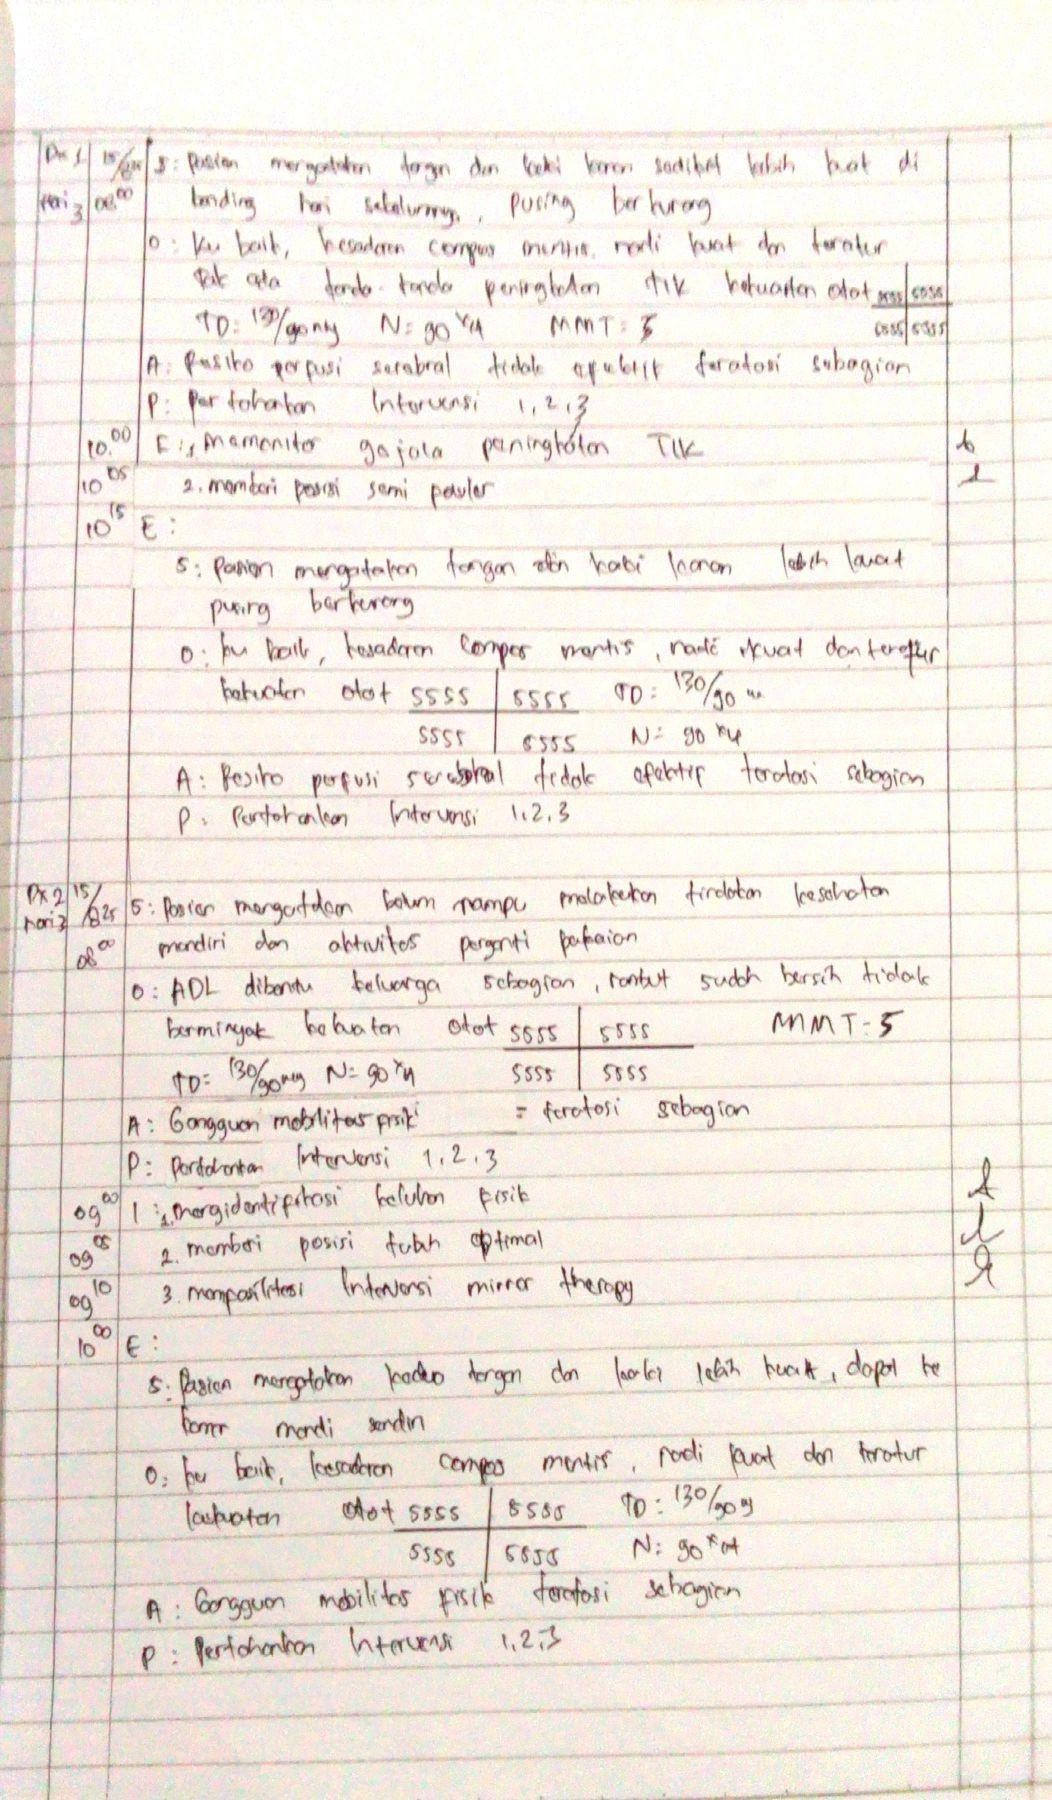 Dx 1 15/8/25 S: Pasien mengatakan tangan dan kaki kanan sedikit lebih kuat di
hari 3 08.00 banding hari sebelumnya, pusing berkurang
O: Ku baik, kesadaran compos mentis, nadi kuat dan teratur
tak ada tanda-tanda peningkatan TIK kekuatan otot 5555 | 5555
TD: 130/90 mmHg N: 90 x/m MMT: 5 5555 | 5555
A: Resiko perfusi serebral tidak efektif teratasi sebagian
P: Pertahankan Intervensi 1, 2, 3
10.00 E: 1, memonitor gejala peningkatan TIK
10 05 2. memberi posisi semi fowler
10 15 E:
S: Pasien mengatakan tangan dan kaki kanan lebih kuat
pusing berkurang
O: ku baik, kesadaran compos mentis, nadi kuat dan teratur
kekuatan otot 5555 | 5555 TD: 130/90
5555 | 5555 N: 90 x/m
A: Resiko perfusi serebral tidak efektif teratasi sebagian
P: Pertahankan Intervensi 1, 2, 3
Dx 2 15/
hari 3 /8 25 S: Pasien mengatakan belum mampu melakukan tindakan kesehatan
08 00 mandiri dan aktivitas perganti pakaian
O: ADL dibantu keluarga sebagian, rambut sudah bersih tidak
berminyak kekuatan otot 5555 | 5555 MMT: 5
TD: 130/90 mmHg N: 90 x/m 5555 | 5555
A: Gangguan mobilitas fisik = teratasi sebagian
P: Pertahankan Intervensi 1, 2, 3
09 00 I: 1. mengidentifikasi keluhan fisik
09 05 2. memberi posisi tubuh optimal
09 10 3. memfasilitasi Intervensi mirror therapy
10 00 E:
S: Pasien mengatakan tangan dan kaki lebih kuat, dapat ke
kamar mandi sendiri
O: ku baik, kesadaran compos mentis, nadi kuat dan teratur
kekuatan otot 5555 | 5555 TD: 130/90
5555 | 5555 N: 90 x/m
A: Gangguan mobilitas fisik teratasi sebagian
P: Pertahankan Intervensi 1, 2, 3